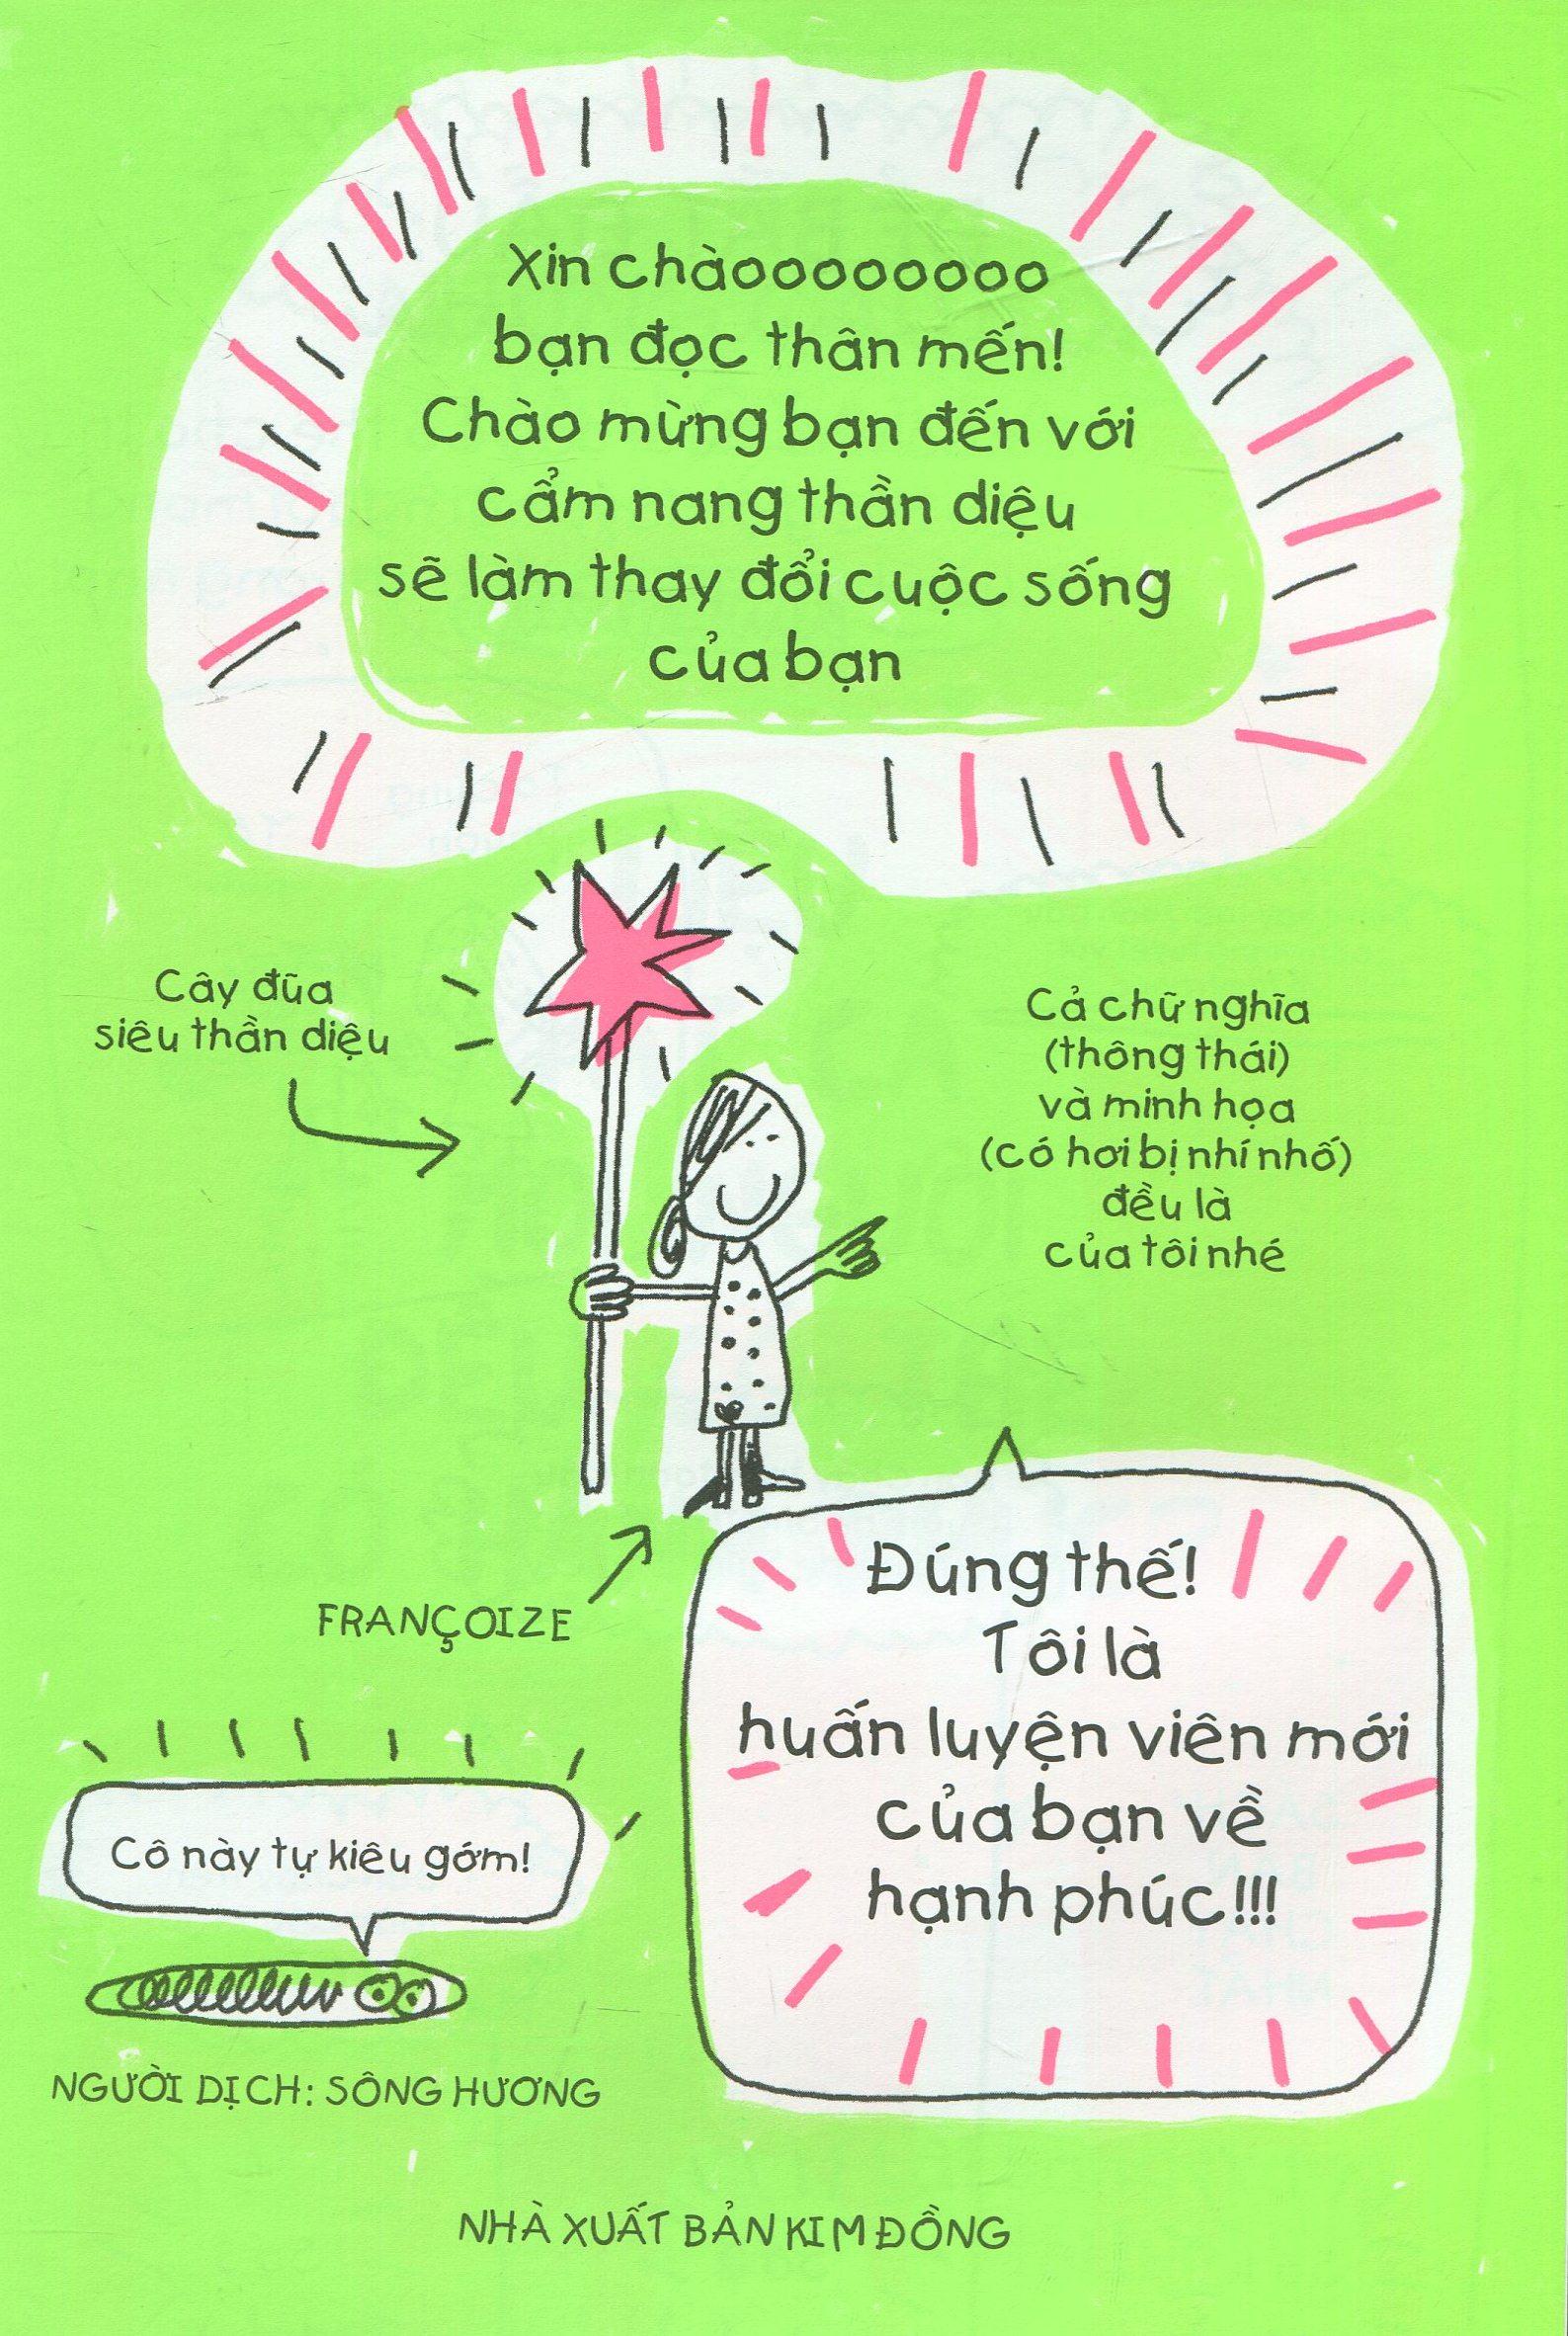 Xin chàoooooooo
bạn đọc thân mến!
Chào mừng bạn đến với
cẩm nang thần diệu
sẽ làm thay đổi cuộc sống
của bạn
Cây đũa
siêu thần diệu
Cả chữ nghĩa
(thông thái)
và minh họa
(có hơi bị nhí nhố)
đều là
của tôi nhé
FRANÇOIZE
Đúng thế!
Tôi là
huấn luyện viên mới
của bạn về
hạnh phúc!!!
Cô này tự kiêu gớm!
NGƯỜI DỊCH: SÔNG HƯƠNG
NHÀ XUẤT BẢN KIM ĐỒNG